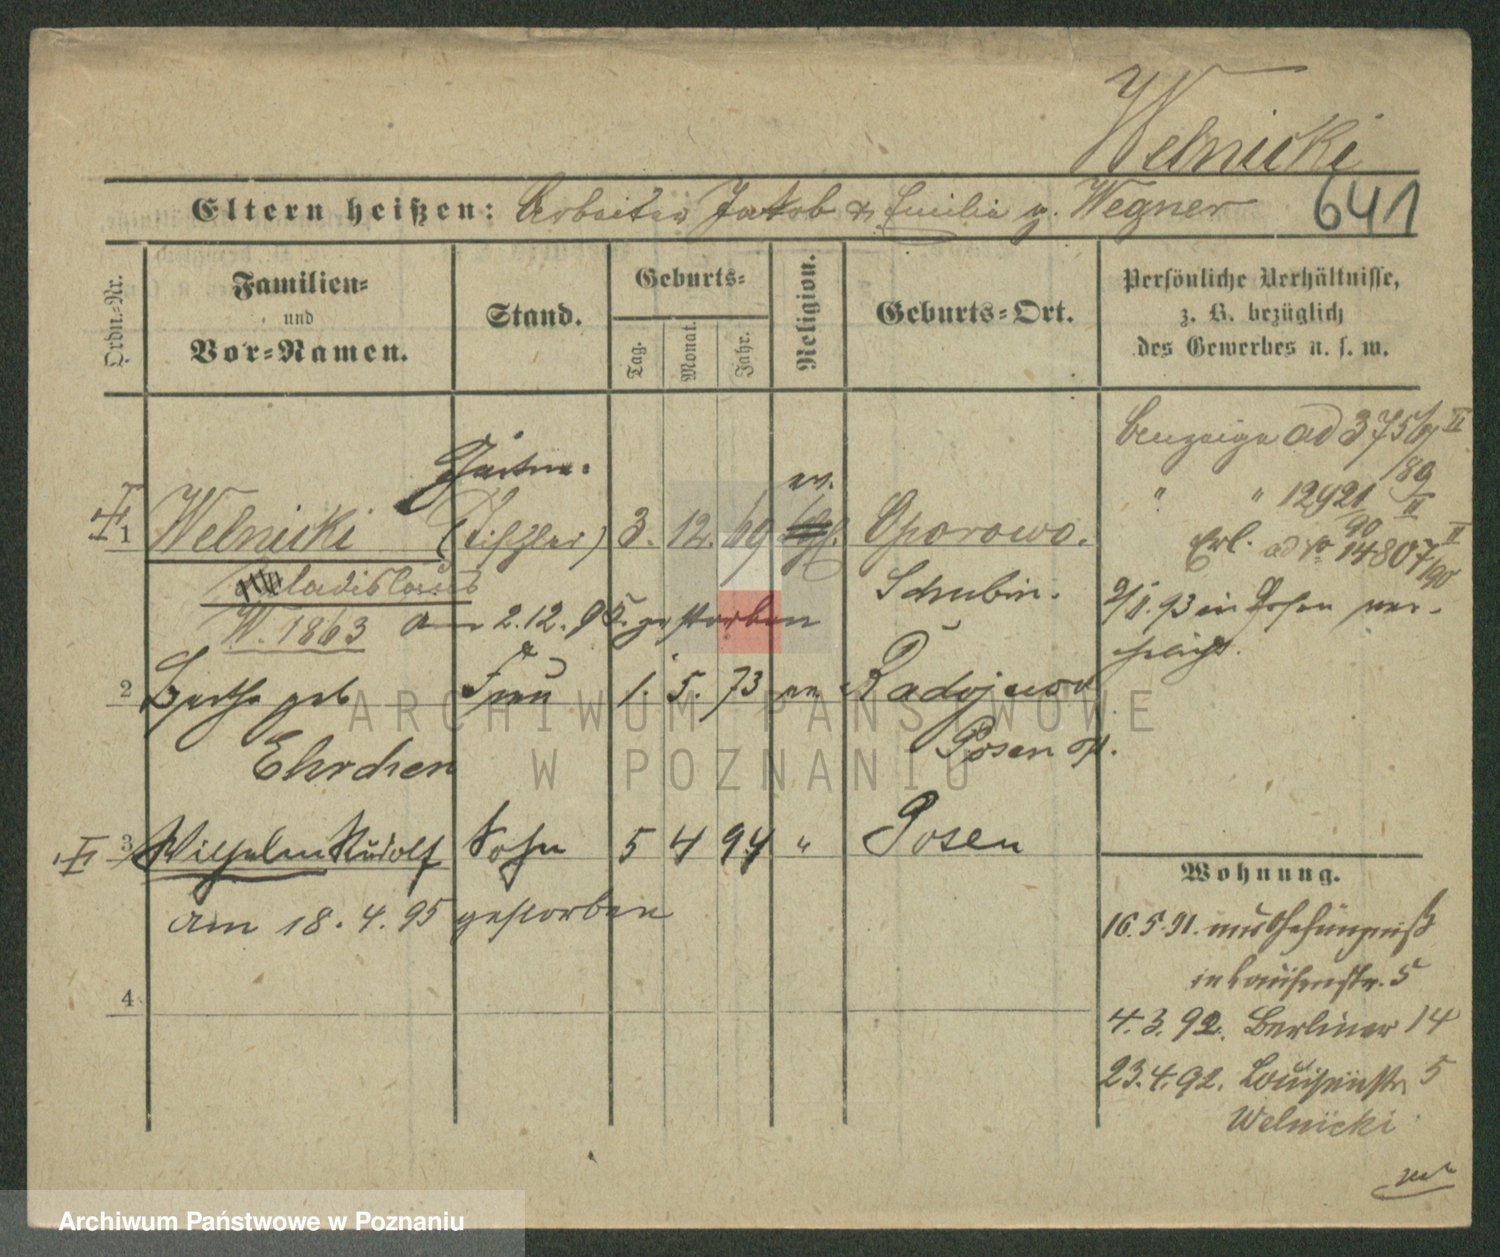 Welnicki
Eltern heißen: Arbeiter Jakob & Emilia g. Wegner 641
Ordn.-Nr.
Familien-
und
Vor-Namen.
Stand.
Geburts-
Tag.
Monat.
Jahr.
Religion.
Geburts-Ort.
Persönliche Verhältnisse,
z. B. bezüglich
des Gewerbes u. s. w.
ad 375
" " 12921
Erl. ad 14807/90
in Posen
1 Welnicki (Tischler) 3. 12. 69 ev. Oporowo.
Wladislaus Schubin.
W. 1863 am 2.12.95 gestorben
2 Bertha geb Frau 1. 5. 73 ev Radojewo
Ehrchen Posen
3 Wilhelm Rudolf Sohn 5 4 94 " Posen
am 18.4.95 gestorben
4
Wohnung.
16.5.91. aus Gefängniß
in Louisenstr. 5
4.3.92. Berliner 14
23.4.92. Louisenstr 5
Welnicki
ARCHIWUM PAŃSTWOWE
W POZNANIU
Archiwum Państwowe w Poznaniu